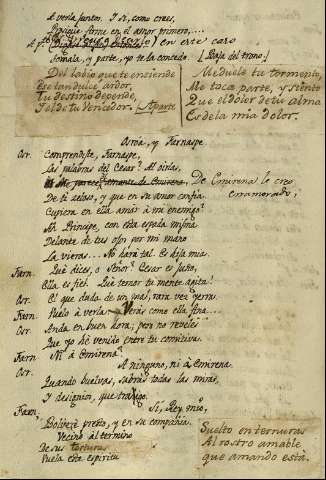 A verla juntos. Y si, como crees,
sigue firme en el amor primero,....
en este caso
Tomala, y parte, yo te la concedo. [Baja del trono.]
Del labio que te enciende
Ese tan dulce ardor,
Tu destino depende,
Fiel de tu Vencedor. [Aparte
Me duele tu tormento,
Me toca parte, y siento
Que el dolor de tu alma
Es de la mia dolor.
Osroa, y Farnaspe.
Osr. Comprendiste, Farnaspe,
las palabras del Cesar? Al oirlas,
Me parece amante de Emirena. De Emirena le creo
enamorado;
De ti zeloso, y que en su amor confia.
Cupiera en ella amár à mi enemigo?
Ah Principe, con esta espada misma
Delante de tus ojos por mi mano
La vieras.... No hará tal. Es hija mia.
Farn. Qué dices, o Señor? Cesar es justo,
Ella es fiel. Qué temor tu mente agita!
Osr. El que duda de un mal, rara vez yerra.
Farn. Vuelo à verla: Verás como ella fina....
Osr. Anda en buen hora; pero no reveles
Que yo hé venido entre tu comitiva.
Farn. Ni à Emirena?
Osr. A ninguno, ni à Emirena.
Quando buelvas, sabrás todas las miras,
Y designios, que traigo.
Farn. Sí, Rey mio,
Bolveré presto, y en su compañia.
Vecino al termino
De sus torturas
Vuela este espiritu
Suelto en ternuras
Al rostro amable
que amando está.